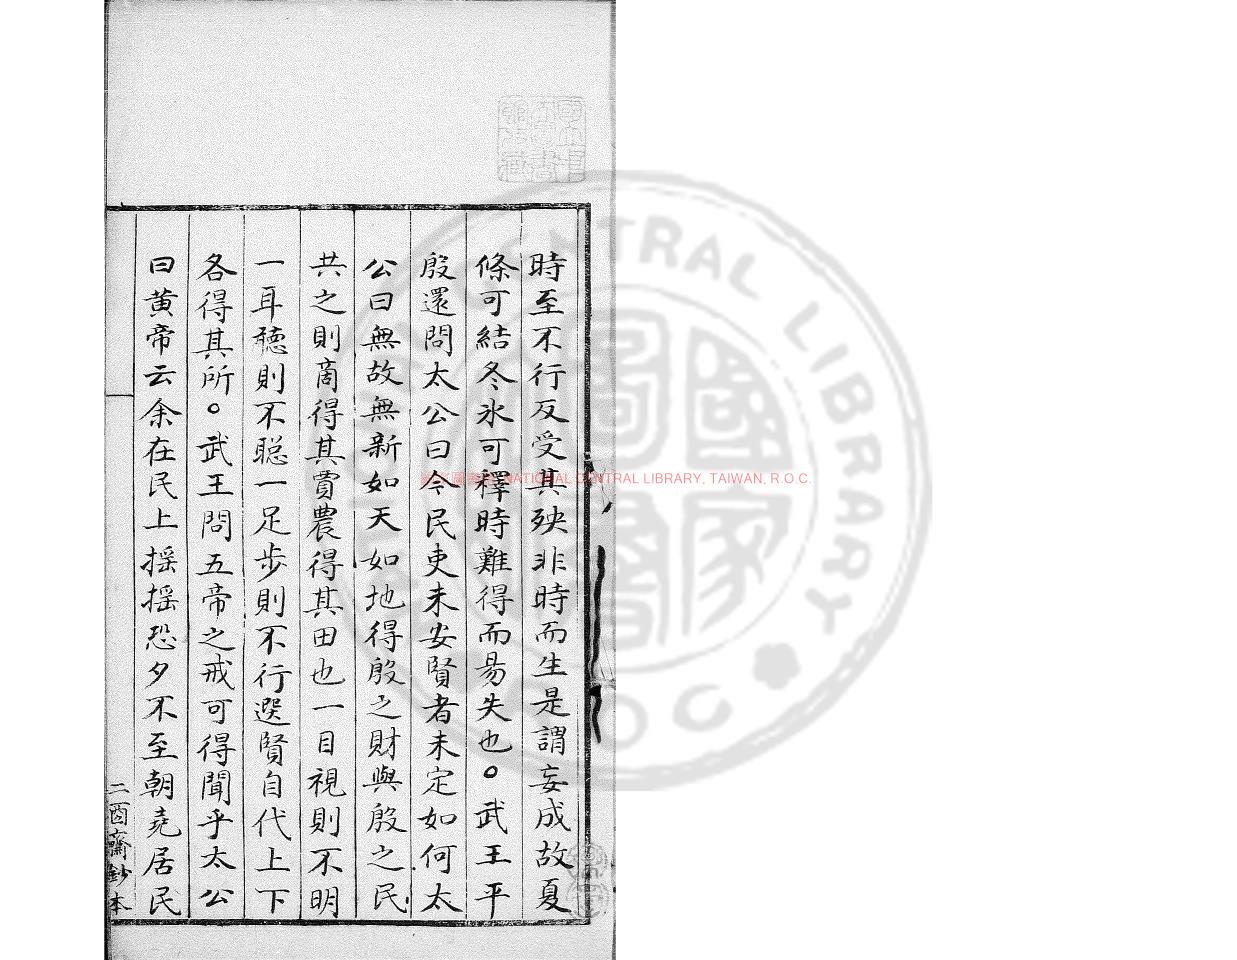 時至不行反受其殃非時而生是謂妄成故夏
條可結冬氷可釋時難得而昜失也。武王平
殷還問太公曰今民吏未安賢者未定如何太
公曰無故無新如天如地得殷之財與殷之民
共之則商得其賈農得其田也一目視則不明
一耳聽則不聰一足步則不行選賢自代上下
各得其所。武王問五帝之戒可得聞乎太公
曰黄帝云余在民上揺揺恐夕不至朝堯居民
二酉齋鈔本
NATIONAL CENTRAL LIBRARY, TAIWAN, R.O.C.
CENTRAL LIBRARY